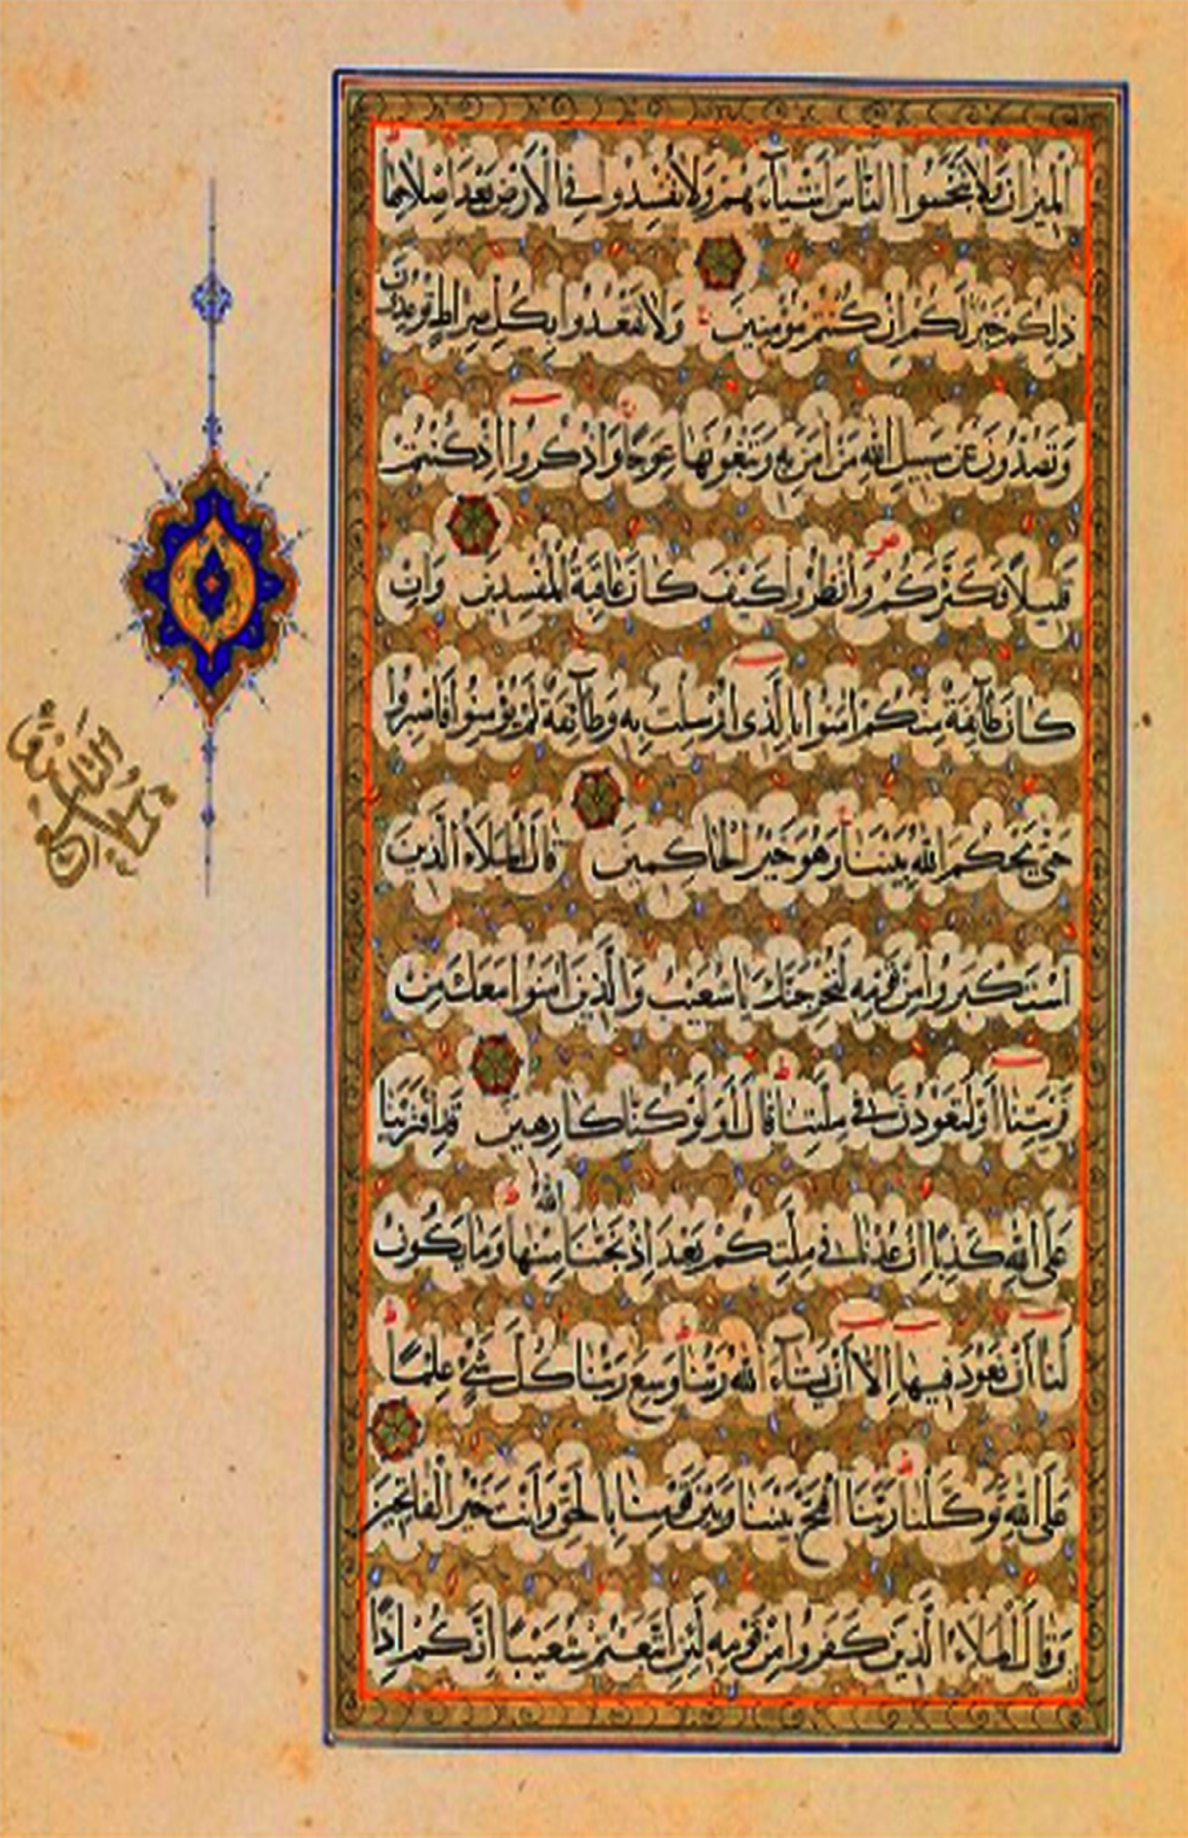 الْمِيزَانَ وَلَا تَبْخَسُوا النَّاسَ أَشْيَآءَهُمْ وَلَا تُفْسِدُوا فِي الْأَرْضِ بَعْدَ اِصْلَاحِهَا ط
ذٰلِكُمْ خَيْرٌ لَكُمْ اِنْ كُنْتُمْ مُؤْمِنِينَ وَلَا تَقْعُدُوا بِكُلِّ صِرَاطٍ تُوعِدُونَ
وَتَصُدُّونَ عَنْ سَبِيلِ اللهِ مَنْ اٰمَنَ بِهِ وَتَبْغُونَهَا عِوَجًا وَاذْكُرُوا اِذْ كُنْتُمْ
قَلِيلًا فَكَثَّرَكُمْ وَانْظُرُوا كَيْفَ كَانَ عَاقِبَةُ الْمُفْسِدِينَ وَاِنْ
كَانَ طَآئِفَةٌ مِنْكُمْ اٰمَنُوا بِالَّذِى اُرْسِلْتُ بِهِ وَطَآئِفَةٌ لَمْ يُؤْمِنُوا فَاصْبِرُوا
حَتّٰى يَحْكُمَ اللهُ بَيْنَنَا وَهُوَ خَيْرُ الْحَاكِمِينَ قَالَ الْمَلَاءُ الَّذِينَ
اسْتَكْبَرُوا مِنْ قَوْمِهِ لَنُخْرِجَنَّكَ يَا شُعَيْبُ وَالَّذِينَ اٰمَنُوا مَعَكَ مِنْ
قَرْيَتِنَا أَوْ لَتَعُودُنَّ فِي مِلَّتِنَا ط قَالَ أَوَلَوْ كُنَّا كَارِهِينَ قَدِ افْتَرَيْنَا
عَلَى اللهِ كَذِبًا اِنْ عُدْنَا فِي مِلَّتِكُمْ بَعْدَ اِذْ نَجّٰنَا اللهُ مِنْهَا ط وَمَا يَكُونُ
لَنَا أَنْ نَعُودَ فِيهَا اِلَّا أَنْ يَشَآءَ اللهُ رَبُّنَا ط وَسِعَ رَبُّنَا كُلَّ شَيْءٍ عِلْمًا ط
عَلَى اللهِ تَوَكَّلْنَا ط رَبَّنَا افْتَحْ بَيْنَنَا وَبَيْنَ قَوْمِنَا بِالْحَقِّ وَأَنْتَ خَيْرُ الْفَاتِحِينَ
وَقَالَ الْمَلَاءُ الَّذِينَ كَفَرُوا مِنْ قَوْمِهِ لَئِنِ اتَّبَعْتُمْ شُعَيْبًا اِنَّكُمْ اِذًا